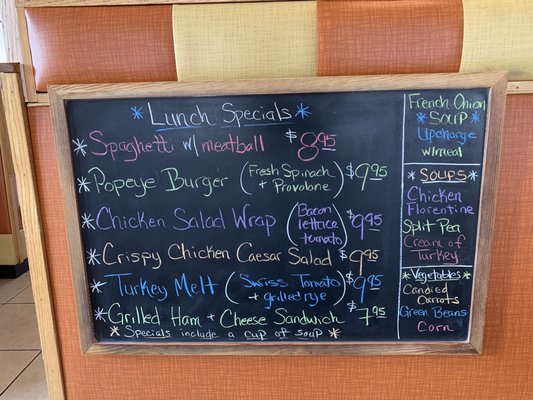 Lunch Specials
Spaghetti w/ meatball $8.95
Popeye Burger (Fresh Spinach + Provolone) $9.95
Chicken Salad Wrap (Bacon lettuce tomato) $9.95
Crispy Chicken Caesar Salad $9.95
Turkey Melt (Swiss Tomato + grilled rye) $9.95
Grilled Ham + Cheese Sandwich $7.95
Specials include a cup of soup
French Onion
Soup
Upcharge
w/meal
Soups
Chicken
Florentine
Split Pea
Cream of
Turkey
Vegetables
Candied
Carrots
Green Beans
Corn